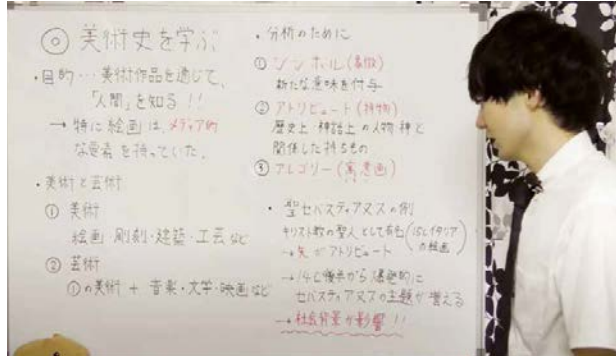 ◎ 美術史を学ぶ
・目的…美術作品を通じて、
「人間」を知る!!
→ 特に絵画は、メディア的
な要素を持っていた。
・美術と芸術
① 美術
絵画・彫刻・建築・工芸など
② 芸術
①の美術 + 音楽・文学・映画など
・分析のために
① シンボル(象徴)
新たな意味を付与
② アトリビュート(持物)
歴史上・神話上の人物・神と
関係した持ちもの
③ アレゴリー(寓意画)
・聖セバスティアヌスの例
キリスト教の聖人として有名(15Cイタリアの絵画)
→矢がアトリビュート
→14C後半から爆発的に
セバスティアヌスの主題が増える
→社会背景が影響!!